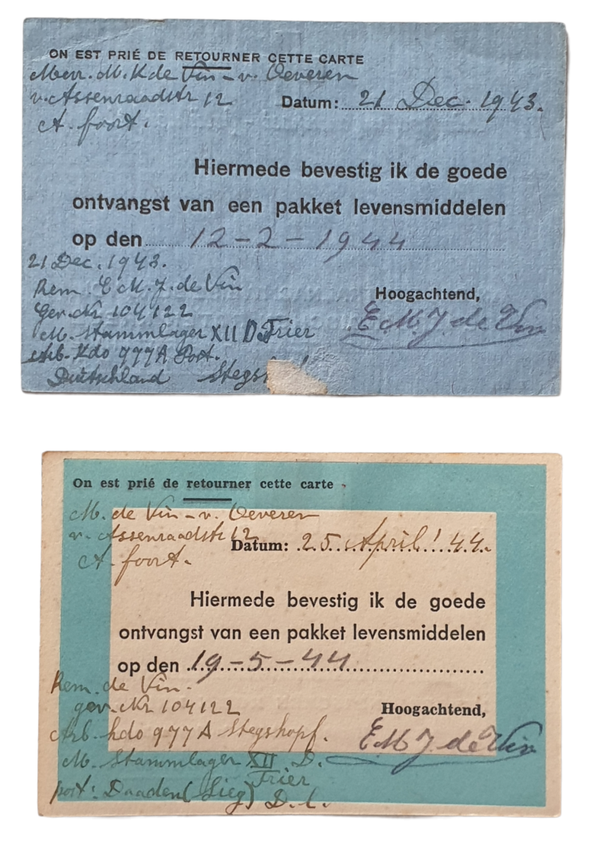 ON EST PRIÉ DE RETOURNER CETTE CARTE
Mevr. M. K de Vin - v. Oeveren
v. Assenraadstr 12
A. foort.
Datum: 21 Dec. 1943.
Hiermede bevestig ik de goede
ontvangst van een pakket levensmiddelen
op den 12-2-1944
21 Dec. 1943.
Rem. E M. J. de Vin
gev. Nr 104122
M. Stammlager XII D Trier
Arb. Kdo 977A Post.
Deutschland Stegs
Hoogachtend,
E M J de Vin
On est prié de retourner cette carte
M. de Vin - v. Oeveren
v. Assenraadstr 12
A. foort.
Datum: 25 April! 44.
Hiermede bevestig ik de goede
ontvangst van een pakket levensmiddelen
op den 19-5-44
Hoogachtend,
E M J de Vin
Rem. de Vin.
gev. Nr 104122
Arb. kdo 977 A Stegskopf.
M. Stammlager XII D.
Trier
post: Daaden (Sieg) D. l.